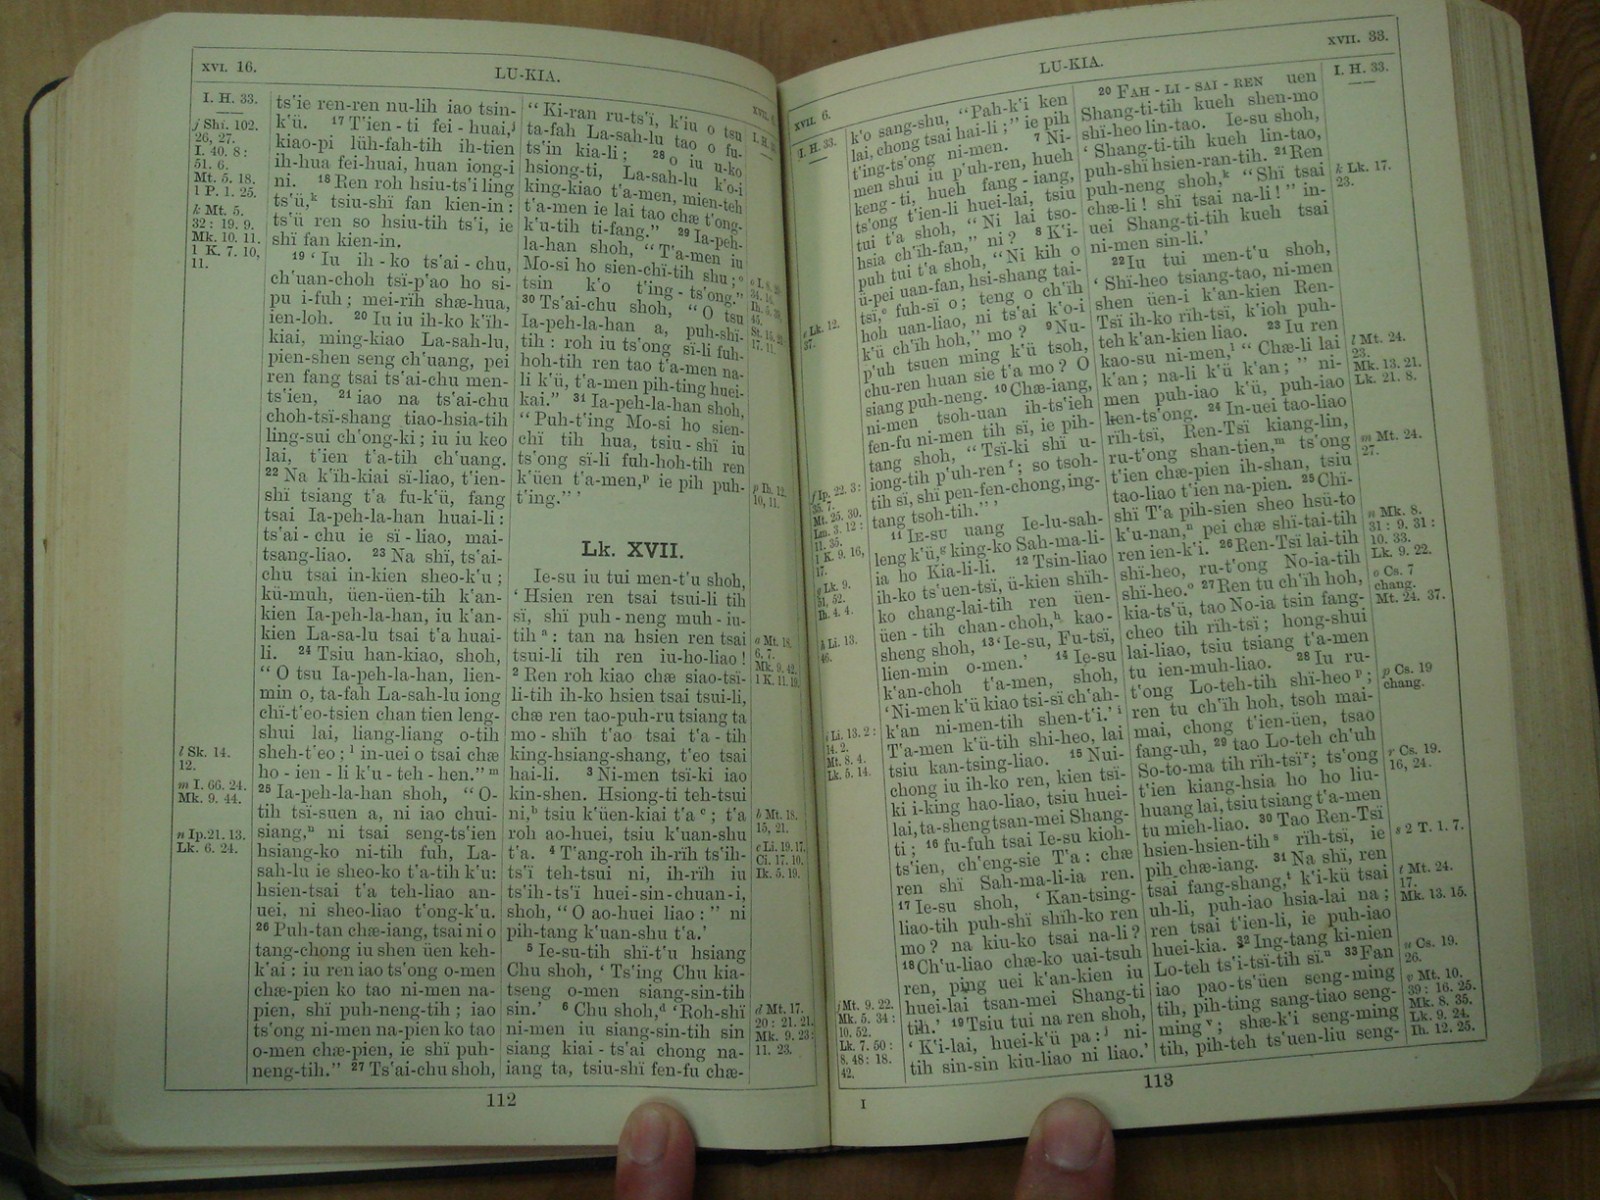 XVI. 16.
LU-KIA.
I. H. 33.
j Shï. 102.
26, 27.
I. 40. 8:
51. 6.
Mt. 5. 18.
1 P. 1. 25.
k Mt. 5.
32: 19. 9.
Mk. 10. 11.
1 K. 7. 10,
11.
l Sk. 14.
12.
m I. 66. 24.
Mk. 9. 44.
n Ip. 21. 13.
Lk. 6. 24.
ts'ie ren-ren nu-lih iao tsin-
k'ü. 17 T'ien-ti fei-huai,j
kiao-pi lüh-fah-tih ih-tien
ih-hua fei-huai, huan iong-i
ni. 18 Ren roh hsiu-ts'i ling
ts'ü,k tsiu-shï fan kien-in:
ts'ü ren so hsiu-tih ts'i, ie
shï fan kien-in.
19 ‘ Iu ih-ko ts'ai-chu,
ch'uan-choh tsï-p'ao ho si-
pu i-fuh; mei-rïh shæ-hua,
ien-loh. 20 Iu iu ih-ko k'ïh-
kiai, ming-kiao La-sah-lu,
pien-shen seng ch'uang, pei
ren fang tsai ts'ai-chu men-
ts'ien, 21 iao na ts'ai-chu
choh-tsï-shang tiao-hsia-tih
ling-sui ch'ong-ki; iu iu keo
lai, t'ien t'a-tih ch'uang.
22 Na k'ïh-kiai sï-liao, t'ien-
shï tsiang t'a fu-k'ü, fang
tsai Ia-peh-la-han huai-li:
ts'ai-chu ie sï-liao, mai-
tsang-liao. 23 Na shï, ts'ai-
chu tsai in-kien sheo-k'u;
kü-muh, üen-üen-tih k'an-
kien Ia-peh-la-han, iu k'an-
kien La-sa-lu tsai t'a huai-
li. 24 Tsiu han-kiao, shoh,
“ O tsu Ia-peh-la-han, lien-
min o, ta-fah La-sah-lu iong
chï-t'eo-tsien chan tien leng-
shui lai, liang-liang o-tih
sheh-t'eo;l in-uei o tsai chæ
ho-ien-li k'u-teh-hen.”m
25 Ia-peh-la-han shoh, “ O-
tih tsï-suen a, ni iao chui-
siang,n ni tsai seng-ts'ien
hsiang-ko ni-tih fuh, La-
sah-lu ie sheo-ko t'a-tih k'u:
hsien-tsai t'a teh-liao an-
uei, ni sheo-liao t'ong-k'u.
26 Puh-tan chæ-iang, tsai ni o
tang-chong iu shen üen keh-
k'ai: iu ren iao ts'ong o-men
chæ-pien ko tao ni-men na-
pien, shï puh-neng-tih; iao
ts'ong ni-men na-pien ko tao
o-men chæ-pien, ie shï puh-
neng-tih.” 27 Ts'ai-chu shoh,
“ Ki-ran ru-ts'ï, k'iu o tsu
ta-fah La-sah-lu tao o fu-
ts'in kia-li; 28 o iu u-ko
hsiong-ti, La-sah-lu k'o-i
king-kiao t'a-men, mien-teh
t'a-men ie lai tao chæ t'ong-
k'u-tih ti-fang.” 29 Ia-peh-
la-han shoh, “ T'a-men iu
Mo-si ho sien-chï-tih shu;o
tsin k'o t'ing-ts'ong.”
30 Ts'ai-chu shoh, “ O tsu
Ia-peh-la-han a, puh-shï-
tih: roh iu ts'ong sï-li fuh-
hoh-tih ren tao t'a-men na-
li k'ü, t'a-men pih-ting huei-
kai.” 31 Ia-peh-la-han shoh,
“ Puh-t'ing Mo-si ho sien-
chï tih hua, tsiu-shï iu
ts'ong sï-li fuh-hoh-tih ren
k'üen t'a-men,p ie pih puh-
t'ing.” ’
Lk. XVII.
Ie-su iu tui men-t'u shoh,
‘ Hsien ren tsai tsui-li tih
sï, shï puh-neng muh-iu-
tih a: tan na hsien ren tsai
tsui-li tih ren iu-ho-liao!
2 Ren roh kiao chæ siao-tsï-
li-tih ih-ko hsien tsai tsui-li,
chæ ren tao-puh-ru tsiang ta
mo-shïh t'ao tsai t'a-tih
king-hsiang-shang, t'eo tsai
hai-li. 3 Ni-men tsï-ki iao
kin-shen. Hsiong-ti teh-tsui
ni,b tsiu k'üen-kiai t'a c; t'a
roh ao-huei, tsiu k'uan-shu
t'a. 4 T'ang-roh ih-rïh ts'ih-
ts'ï teh-tsui ni, ih-rïh iu
ts'ih-ts'ï huei-sin-chuan-i,
shoh, “ O ao-huei liao:” ni
pih-tang k'uan-shu t'a.’
5 Ie-su-tih shï-t'u hsiang
Chu shoh, ‘ Ts'ing Chu kia-
tseng o-men siang-sin-tih
sin.’ 6 Chu shoh,d ‘ Roh-shï
ni-men iu siang-sin-tih sin
siang kiai-ts'ai chong na-
iang ta, tsiu-shï fen-fu chæ-
p Ih. 12.
10, 11.
a Mt. 18.
6. 7.
Mk. 9. 42.
1 K. 11. 19.
b Mt. 18.
15, 21.
c Li. 19. 17.
Ci. 17. 10.
Ik. 5. 19.
d Mt. 17.
20: 21. 21.
Mk. 9. 23:
11. 23.
112
XVII. 6.
LU-KIA.
XVII. 33.
I. H. 33.
e Lk. 12.
37.
f Ip. 22. 3:
35. 7.
Mt. 25. 30.
Lm. 3. 12:
11. 35.
1 K. 9. 16,
17.
g Lk. 9.
51, 52.
Ih. 4. 4.
h Li. 13.
46.
i Li. 13. 2:
14. 2.
Mt. 8. 4.
Lk. 5. 14.
j Mt. 9. 22.
Mk. 5. 34:
10. 52.
Lk. 7. 50:
8. 48: 18.
42.
k'o sang-shu, “Pah-k'i ken
lai, chong tsai hai-li;” ie pih
t'ing-ts'ong ni-men. 7 Ni-
men shui iu p'uh-ren, hueh
keng-ti, hueh fang-iang,
ts'ong t'ien-li huei-lai, tsiu
tui t'a shoh, “ Ni lai tso-
hsia ch'ïh-fan,” ni? 8 K'i-
puh tui t'a shoh, “ Ni kih o
ü-pei uan-fan, hsi-shang tai-
tsï,e fuh-sï o; teng o ch'ïh
hoh uan-liao, ni ts'ai k'o-i
k'ü ch'ïh hoh,” mo? 9 Nu-
p'uh tsuen ming k'ü tsoh,
chu-ren huan sie t'a mo? O
siang puh-neng. 10 Chæ-iang,
ni-men tsoh-uan ih-ts'ieh
fen-fu ni-men tih sï, ie pih-
tang shoh, “ Tsï-ki shï u-
iong-tih p'uh-ren f; so tsoh-
tih sï, shï pen-fen-chong, ing-
tang tsoh-tih.” ’
11 IE-SU uang Ie-lu-sah-
leng k'ü,g king-ko Sah-ma-li-
ia ho Kia-li-li. 12 Tsin-liao
ih-ko ts'uen-tsï, ü-kien shïh-
ko chang-lai-tih ren üen-
üen-tih chan-choh,h kao-
sheng shoh, 13 ‘ Ie-su, Fu-tsï,
lien-min o-men.’ 14 Ie-su
k'an-choh t'a-men, shoh,
‘ Ni-men k'ü kiao tsi-sï ch'ah-
k'an ni-men-tih shen-t'i.’i
T'a-men k'ü-tih shi-heo, lai
tsiu kan-tsing-liao. 15 Nui-
chong iu ih-ko ren, kien tsï-
ki i-king hao-liao, tsiu huei-
lai, ta-sheng tsan-mei Shang-
ti; 16 fu-fuh tsai Ie-su kioh-
ts'ien, ch'eng-sie T'a: chæ
ren shï Sah-ma-li-ia ren.
17 Ie-su shoh, ‘ Kan-tsing-
liao-tih puh-shï shïh-ko ren
mo? na kiu-ko tsai na-li?
18 Ch'u-liao chæ-ko uai-tsuh
ren, ping uei k'an-kien iu
huei-lai tsan-mei Shang-ti
tih.’ 19 Tsiu tui na ren shoh,
‘ K'i-lai, huei-k'ü pa:j ni-
tih sin-sin kiu-liao ni liao.’
20 FAH-LI-SAI-REN uen
Shang-ti-tih kueh shen-mo
shï-heo lin-tao. Ie-su shoh,
‘ Shang-ti-tih kueh lin-tao,
puh-shï hsien-ran-tih. 21 Ren
puh-neng shoh,k “ Shï tsai
chæ-li! shï tsai na-li!” in-
uei Shang-ti-tih kueh tsai
ni-men sin-li.’
22 Iu tui men-t'u shoh,
‘ Shï-heo tsiang-tao, ni-men
shen üen-i k'an-kien Ren-
Tsï ih-ko rïh-tsï, k'ioh puh-
teh k'an-kien liao. 23 Iu ren
kao-su ni-men,l “ Chæ-li lai
k'an; na-li k'ü k'an;” ni-
men puh-iao k'ü, puh-iao
ken-ts'ong. 24 In-uei tao-liao
rïh-tsï, Ren-Tsï kiang-lin,
ru-t'ong shan-tien,m ts'ong
t'ien chæ-pien ih-shan, tsiu
tao-liao t'ien na-pien. 25 Chï-
shï T'a pih-sien sheo hsü-to
k'u-nan,n pei chæ shï-tai-tih
ren ien-k'i. 26 Ren-Tsï lai-tih
shï-heo, ru-t'ong No-ia-tih
shï-heo.o 27 Ren tu ch'ïh hoh,
kia-ts'ü, tao No-ia tsin fang-
cheo tih rïh-tsï; hong-shui
lai-liao, tsiu tsiang t'a-men
tu ien-muh-liao. 28 Iu ru-
t'ong Lo-teh-tih shï-heo p;
ren tu ch'ïh hoh, tsoh mai-
mai, chong t'ien-üen, tsao
fang-uh, 29 tao Lo-teh ch'uh
So-to-ma tih rïh-tsï r; ts'ong
t'ien kiang-hsia ho ho liu-
huang lai, tsiu tsiang t'a-men
tu mieh-liao. 30 Tao Ren-Tsï
hsien-hsien-tih s rïh-tsï, ie
pih chæ-iang. 31 Na shï, ren
tsai fang-shang,t k'i-kü tsai
uh-li, puh-iao hsia-lai na;
ren tsai t'ien-li, ie puh-iao
huei-kia. 32 Ing-tang ki-nien
Lo-teh ts'i-tsï-tih sï.u 33 Fan
iao pao-ts'üen seng-ming
tih, pih-ting sang-tiao seng-
ming v; shæ-k'i seng-ming
tih, pih-teh ts'uen-liu seng-
I. H. 33.
k Lk. 17.
23.
l Mt. 24.
23.
Mk. 13. 21.
Lk. 21. 8.
m Mt. 24.
27.
n Mk. 8.
31: 9. 31:
10. 33.
Lk. 9. 22.
o Cs. 7
chang.
Mt. 24. 37.
p Cs. 19
chang.
r Cs. 19.
16, 24.
s 2 T. 1. 7.
t Mt. 24.
17.
Mk. 13. 15.
u Cs. 19.
26.
v Mt. 10.
39: 16. 25.
Mk. 8. 35.
Lk. 9. 24.
Ih. 12. 25.
I
113